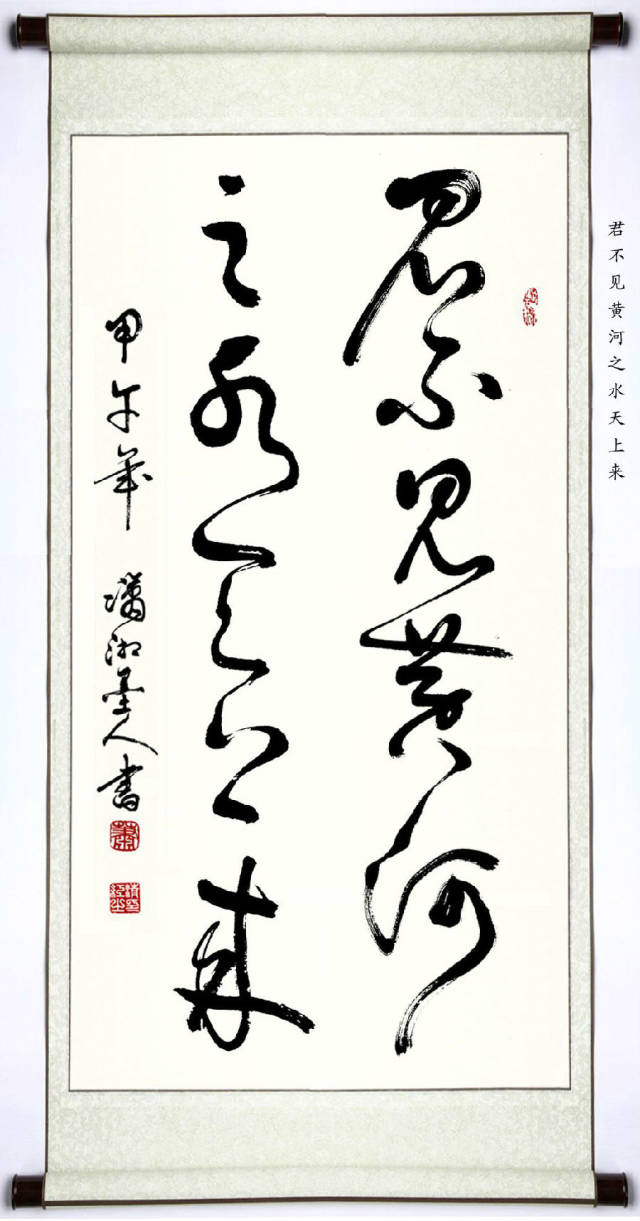 君不见黄河之水天上来
君不見黄河
之水天上来
甲午年 瀟湘墨人書